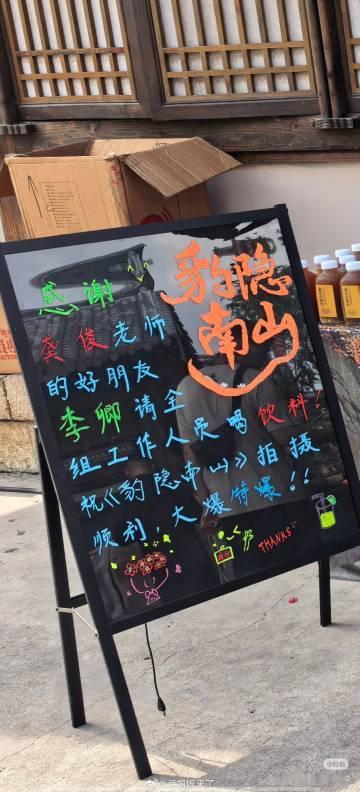 感谢
豹隐
南山
龚俊老师
的好朋友
李卿请全
组工作人员喝饮料!
祝《豹隐南山》拍摄
顺利,大爆特爆!!
THANKS
小红书